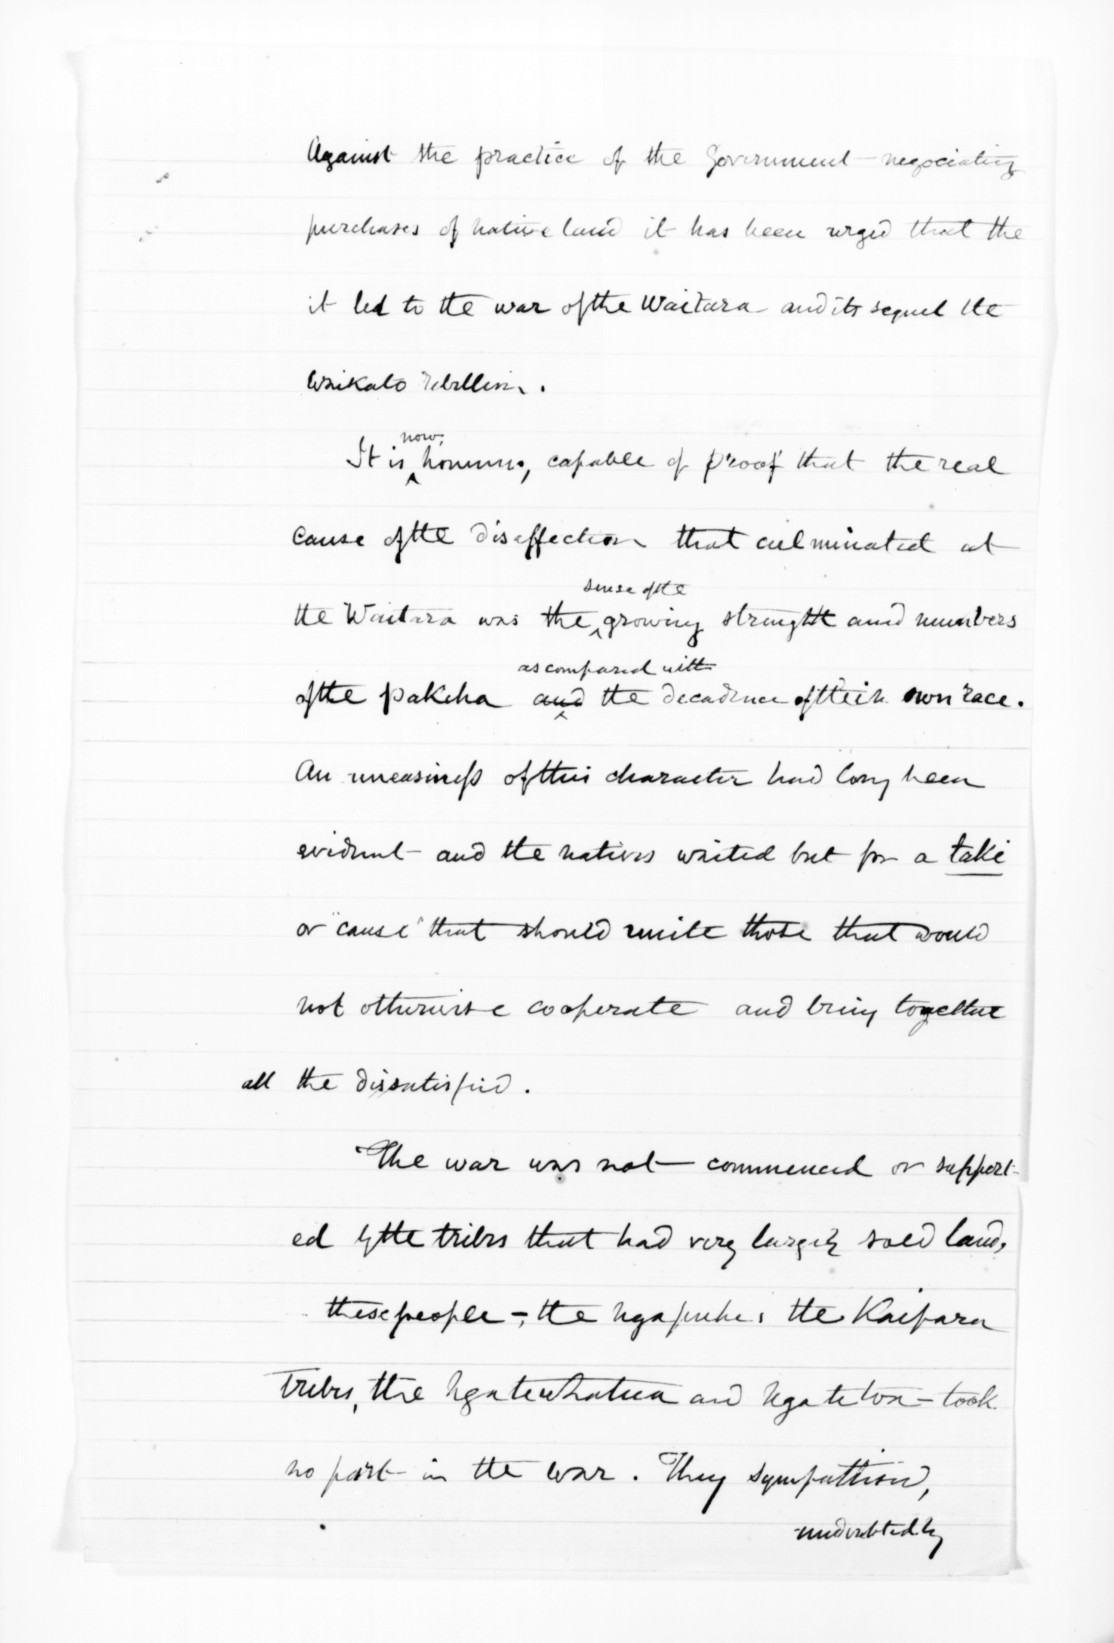 Against the practice of the Government negociating
purchases of native land it has been urged that the
it led to the war of the Waitara and its sequel the
Waikato rebellion.
now,
It is however, capable of proof that the real
cause of the disaffection that culminated at
sense of the
the Waitara was the growing strength and numbers
as compared with
of the pakeha and the decadence of their own race.
An uneasiness of this character had long been
evident and the natives waited but for a take
or "cause" that should unite those that would
not otherwise cooperate and bring together
all the dissatisfied.
The war was not commenced or support-
ed by the tribes that had very largely sold land,
these people -, the Ngapuhi, the Kaipara
tribes, the Ngatewhatua and Ngatetoa - took
no part in the war. They sympathised,
undoubtedly